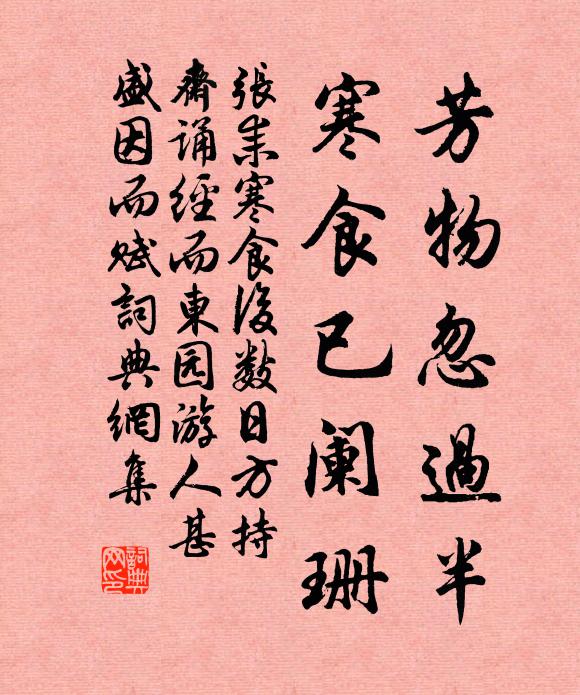 芳物忽過半
寒食已阑珊
張耒寒食後數日方持
齋誦經而東园游人甚
盛因而赋詞典網集
詞典网印